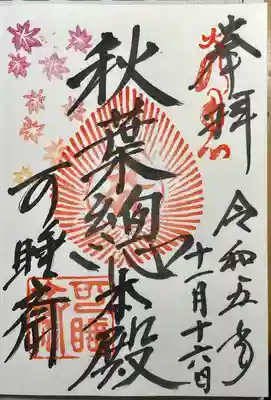 奉拝
令和五年
十一月十六日
秋葉總本殿
可睡斎